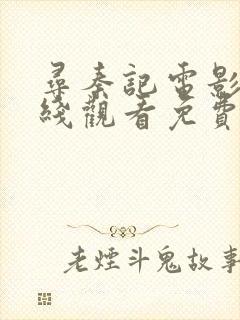 尋秦記電影
綫觀看免費
老煙斗鬼故事